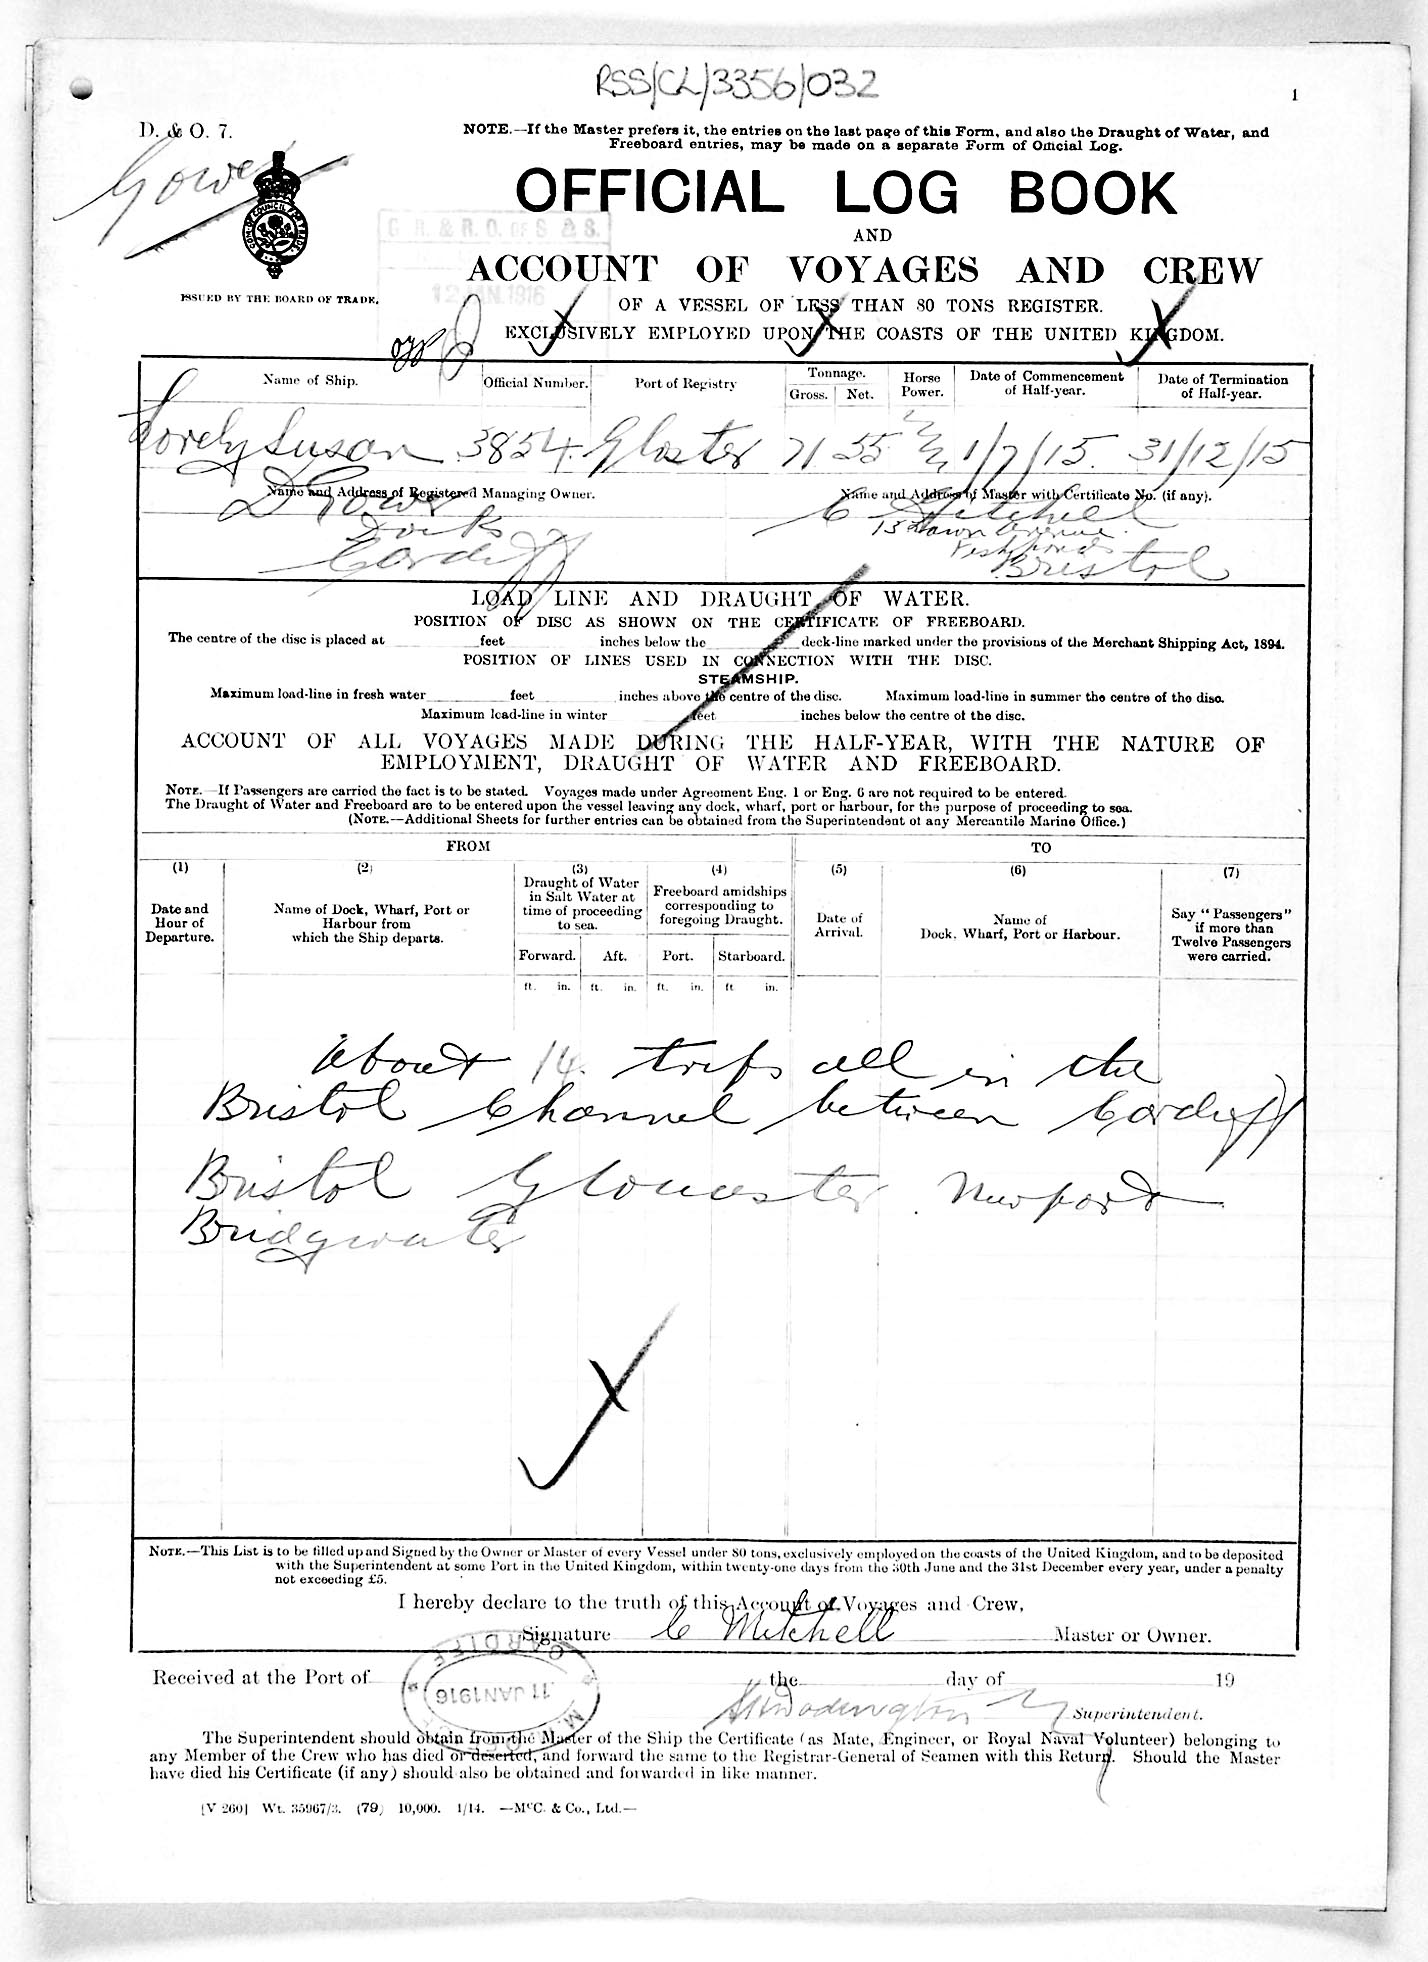 RSS/CL/3356/032
1
D. & O. 7.
NOTE.—If the Master prefers it, the entries on the last page of this Form, and also the Draught of Water, and
Freeboard entries, may be made on a separate Form of Official Log.
Gower
OFFICIAL LOG BOOK
AND
ACCOUNT OF VOYAGES AND CREW
OF A VESSEL OF LESS THAN 80 TONS REGISTER.
EXCLUSIVELY EMPLOYED UPON THE COASTS OF THE UNITED KINGDOM.
ISSUED BY THE BOARD OF TRADE.
G. R. & R. O. OF S & S.
12 JAN. 1916
Name of Ship. Official Number. Port of Registry Tonnage. Gross. Net. Horse Power. Date of Commencement of Half-year. Date of Termination of Half-year.
Lovely Susan 3854 Gloster 71 55 1/7/15. 31/12/15
Name and Address of Registered Managing Owner. Name and Address of Master with Certificate No. (if any).
D Gower C Mitchell
Docks 13 Lawn Avenue
Cardiff Fishponds
Bristol
LOAD LINE AND DRAUGHT OF WATER.
POSITION OF DISC AS SHOWN ON THE CERTIFICATE OF FREEBOARD.
The centre of the disc is placed at feet inches below the deck-line marked under the provisions of the Merchant Shipping Act, 1894.
POSITION OF LINES USED IN CONNECTION WITH THE DISC.
STEAMSHIP.
Maximum load-line in fresh water feet inches above the centre of the disc. Maximum load-line in summer the centre of the disc.
Maximum load-line in winter feet inches below the centre of the disc.
ACCOUNT OF ALL VOYAGES MADE DURING THE HALF-YEAR, WITH THE NATURE OF
EMPLOYMENT, DRAUGHT OF WATER AND FREEBOARD.
NOTE.—If Passengers are carried the fact is to be stated. Voyages made under Agreement Eng. 1 or Eng. 6 are not required to be entered.
The Draught of Water and Freeboard are to be entered upon the vessel leaving any dock, wharf, port or harbour, for the purpose of proceeding to sea.
(NOTE.—Additional Sheets for further entries can be obtained from the Superintendent of any Mercantile Marine Office.)
FROM TO
(1) (2) (3) (4) (5) (6) (7)
Date and Hour of Departure.
Name of Dock, Wharf, Port or Harbour from which the Ship departs.
Draught of Water in Salt Water at time of proceeding to sea.
Freeboard amidships corresponding to foregoing Draught.
Date of Arrival.
Name of Dock, Wharf, Port or Harbour.
Say "Passengers" if more than Twelve Passengers were carried.
Forward. Aft. Port. Starboard.
ft. in. ft. in. ft. in. ft in.
About 14 trips all in the
Bristol Channel between Cardiff
Bristol Gloucester Newport
Bridgwater
NOTE.—This List is to be filled up and Signed by the Owner or Master of every Vessel under 80 tons, exclusively employed on the coasts of the United Kingdom, and to be deposited
with the Superintendent at some Port in the United Kingdom, within twenty-one days from the 30th June and the 31st December every year, under a penalty
not exceeding £5.
I hereby declare to the truth of this Account of Voyages and Crew,
Signature C Mitchell Master or Owner.
Received at the Port of the day of 19
CARDIFF
11 JAN 1916
Superintendent.
The Superintendent should obtain from the Master of the Ship the Certificate (as Mate, Engineer, or Royal Naval Volunteer) belonging to
any Member of the Crew who has died or deserted, and forward the same to the Registrar-General of Seamen with this Return. Should the Master
have died his Certificate (if any) should also be obtained and forwarded in like manner.
[V 260] Wt. 35967/3. (79) 10,000. 1/14. —McC. & Co., Ltd.—